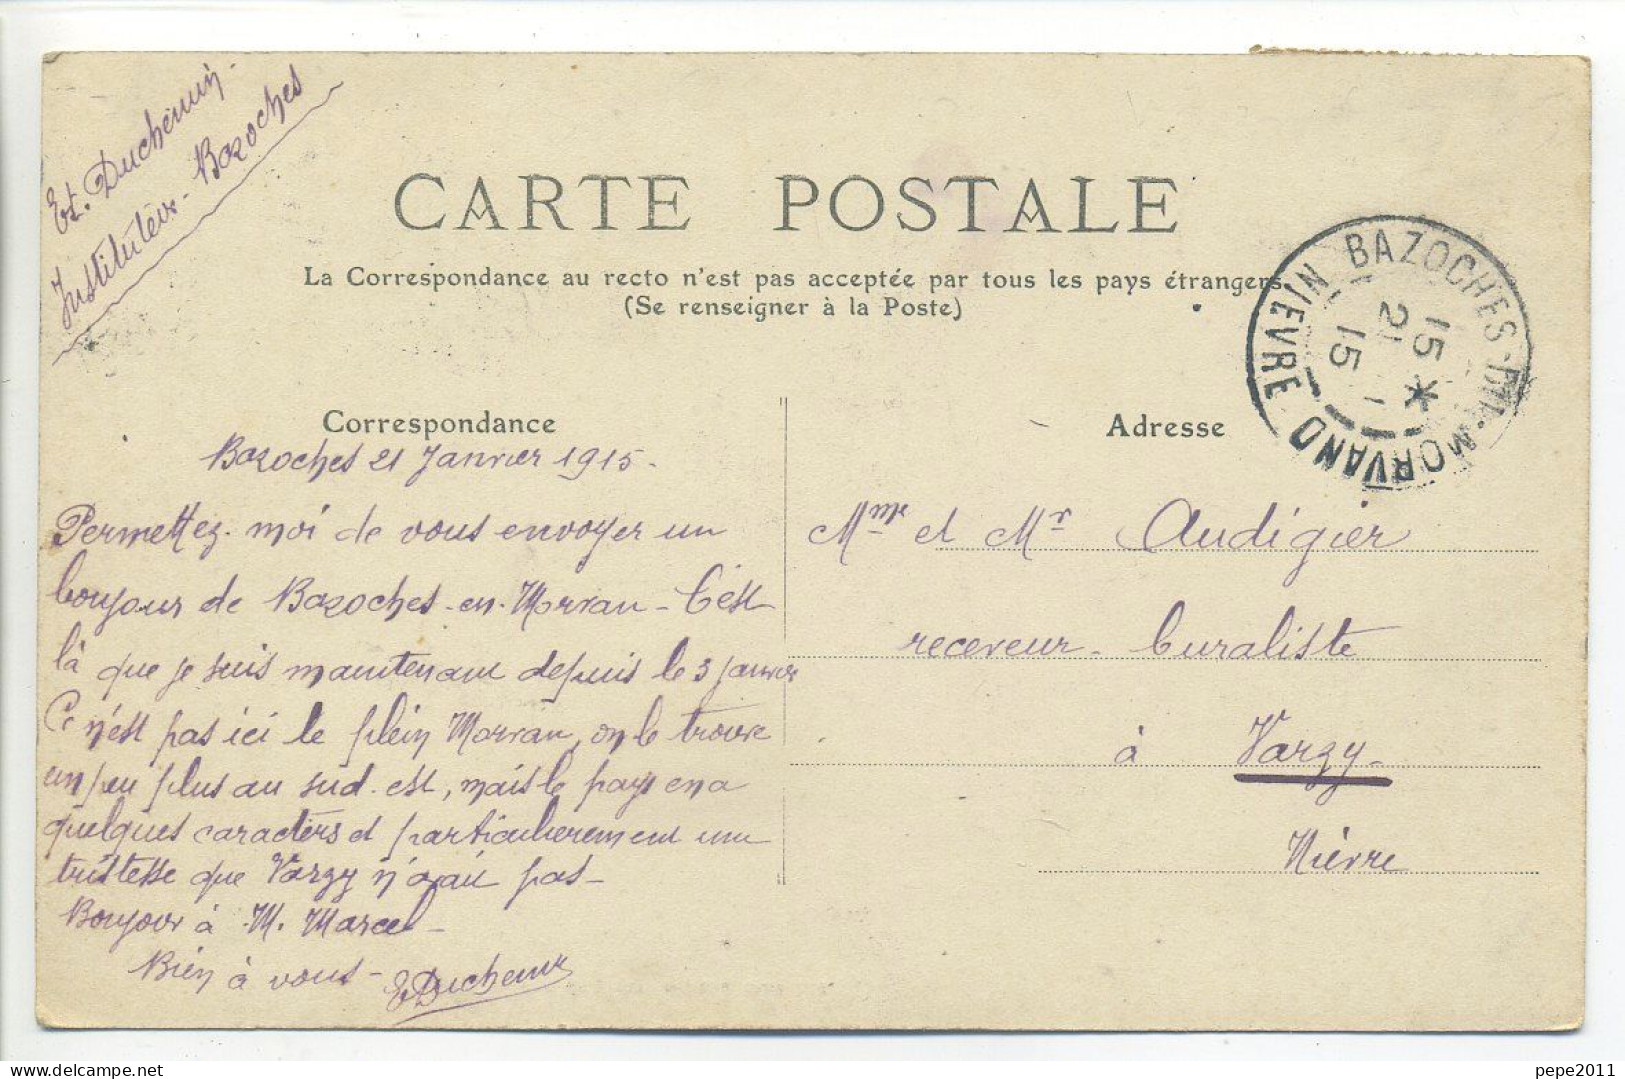 Et. Duchemin -
Instituteur - Bazoches
CARTE POSTALE
La Correspondance au recto n'est pas acceptée par tous les pays étrangers.
(Se renseigner à la Poste)
BAZOCHES-DU-MORVAND NIEVRE
15 *
21 - 1
15
Correspondance
Bazoches 21 Janvier 1915.
Permettez-moi de vous envoyer un
bonjour de Bazoches-en-Morvan - C'est
là que je suis maintenant depuis le 3 janvier
Ce n'est pas ici le plein Morvan, on le trouve
un peu plus au sud-est, mais le pays en a
quelques caractères et particulièrement une
tristesse que Varzy n'avait pas -
Bonjour à M. Marcel -
Bien à vous - EDuchemin
Adresse
Mme et Mr Audigier
receveur - buraliste
à Varzy -
Nièvre
pepe2011